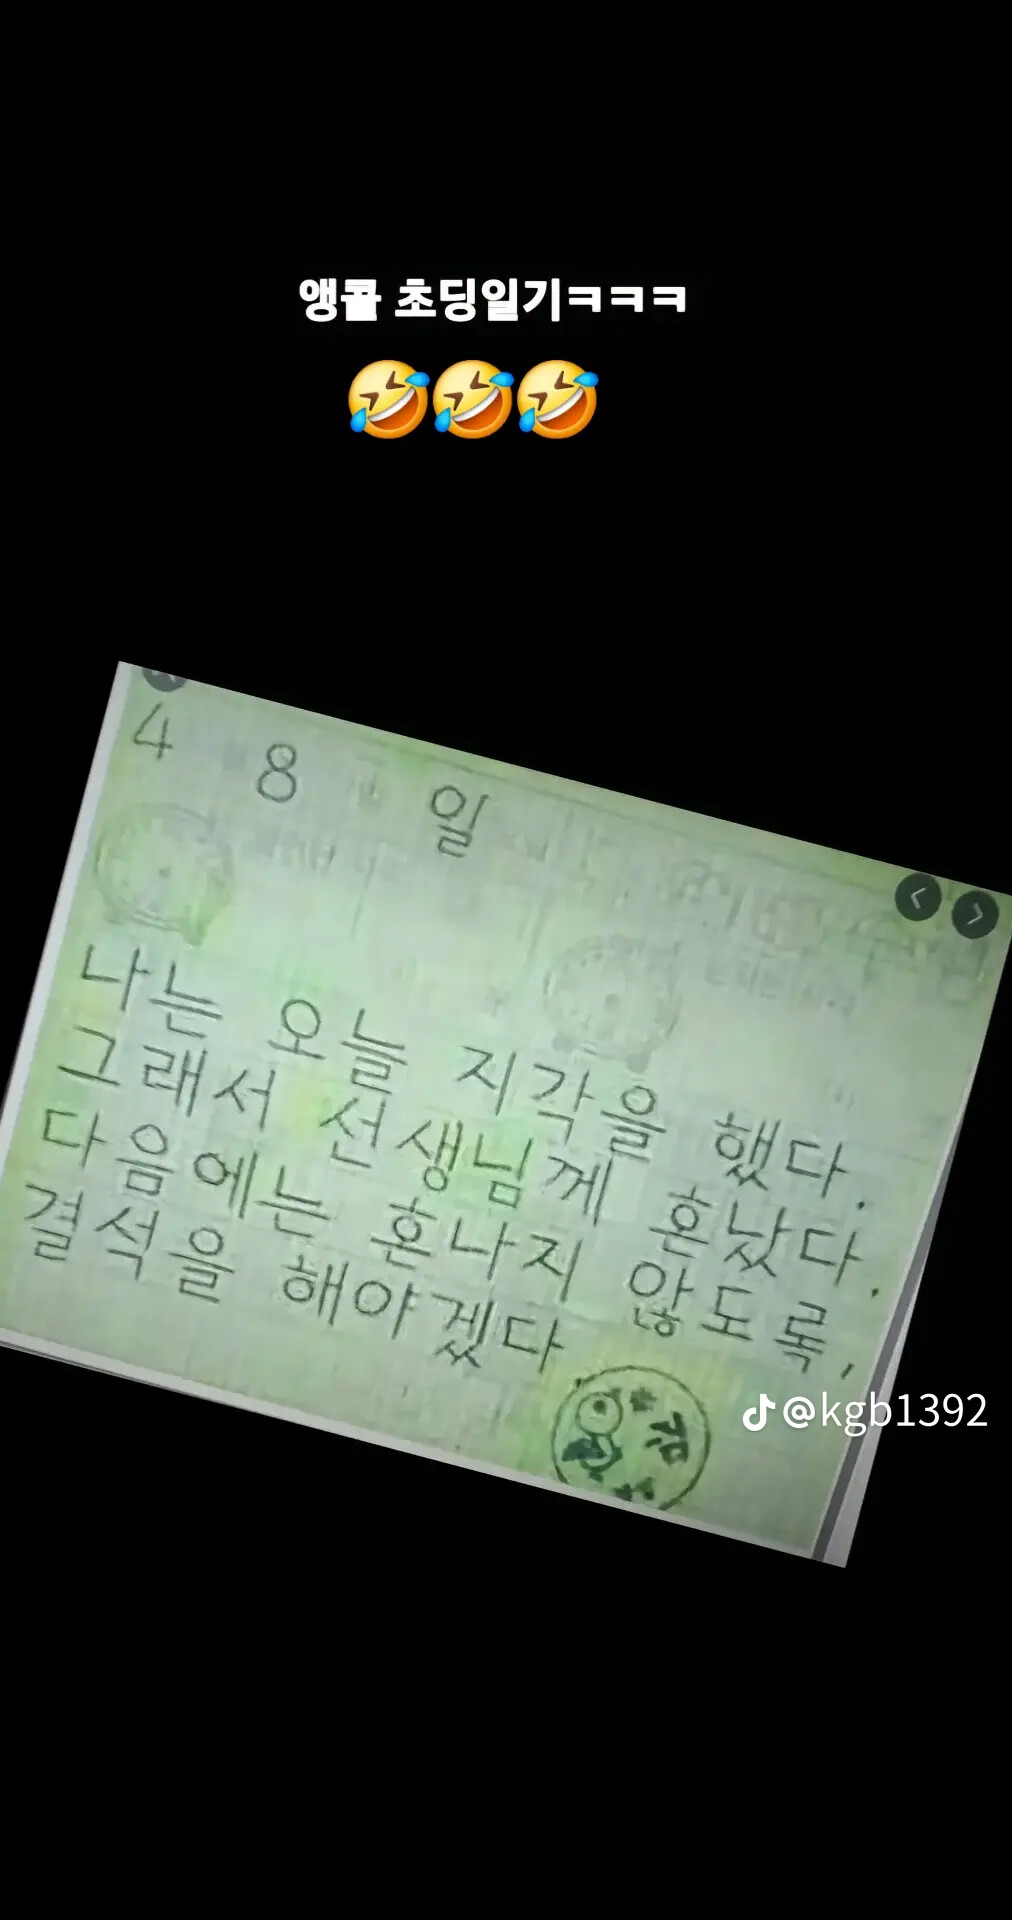 앵콜 초딩일기ㅋㅋㅋ
🤣🤣🤣
4 8 일
나는 오늘 지각을 했다.
그래서 선생님께 혼났다.
다음에는 혼나지 않도록,
결석을 해야겠다.
@kgb1392